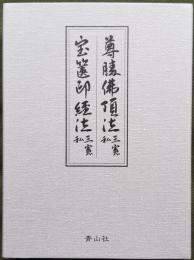 尊勝佛頂法 三宝私
宝篋印経法 三宝私
青山社